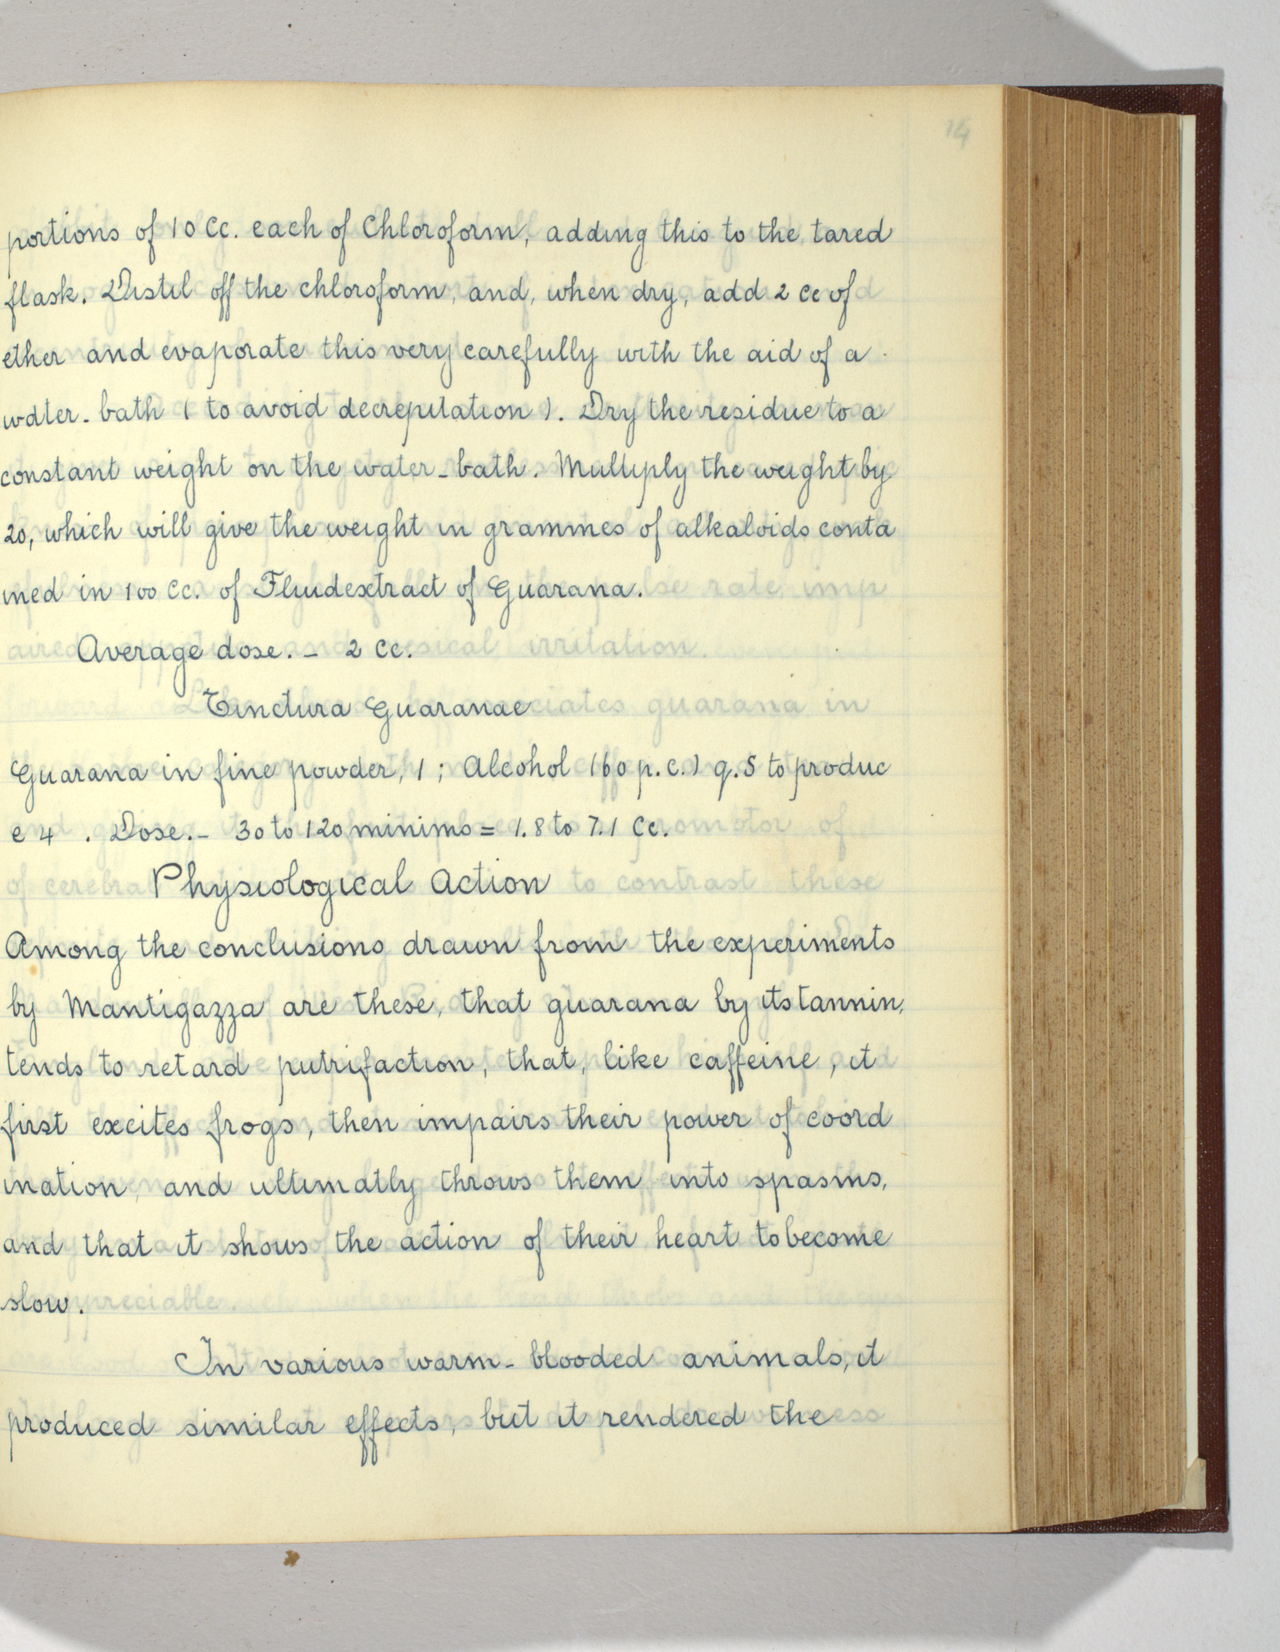 14
portions of 10 Cc. each of Chloroform, adding this to the tared
flask. Distil off the chloroform, and, when dry, add 2 cc of
ether and evaporate this very carefully with the aid of a
water-bath ( to avoid decrepitation ). Dry the residue to a
constant weight on the water-bath. Multiply the weight by
20, which will give the weight in grammes of alkaloids conta
ined in 100 Cc. of Fluidextract of Guarana.
Average dose. - 2 Cc.
Tinctura Guaranae
Guarana in fine powder, 1 ; Alcohol (60 p.c.) q.s to produc
e 4 . Dose.- 30 to 120 minims = 1.8 to 7.1 Cc.
Physiological Action
Among the conclusions drawn from the experiments
by Mantigazza are these, that guarana by its tannin,
tends to retard putrifaction, that, like caffeine, it
first excites frogs, then impairs their power of coord
ination, and ultimatly throws them into spasms,
and that it shows the action of their heart to become
slow.
In various warm-blooded animals, it
produced similar effects, but it rendered the